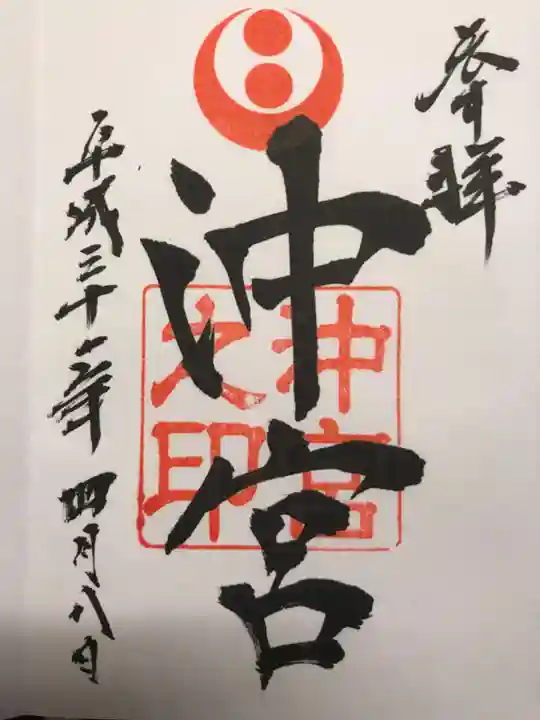 奉拝
沖宮
沖宮
之印
平成三十一年四月八日